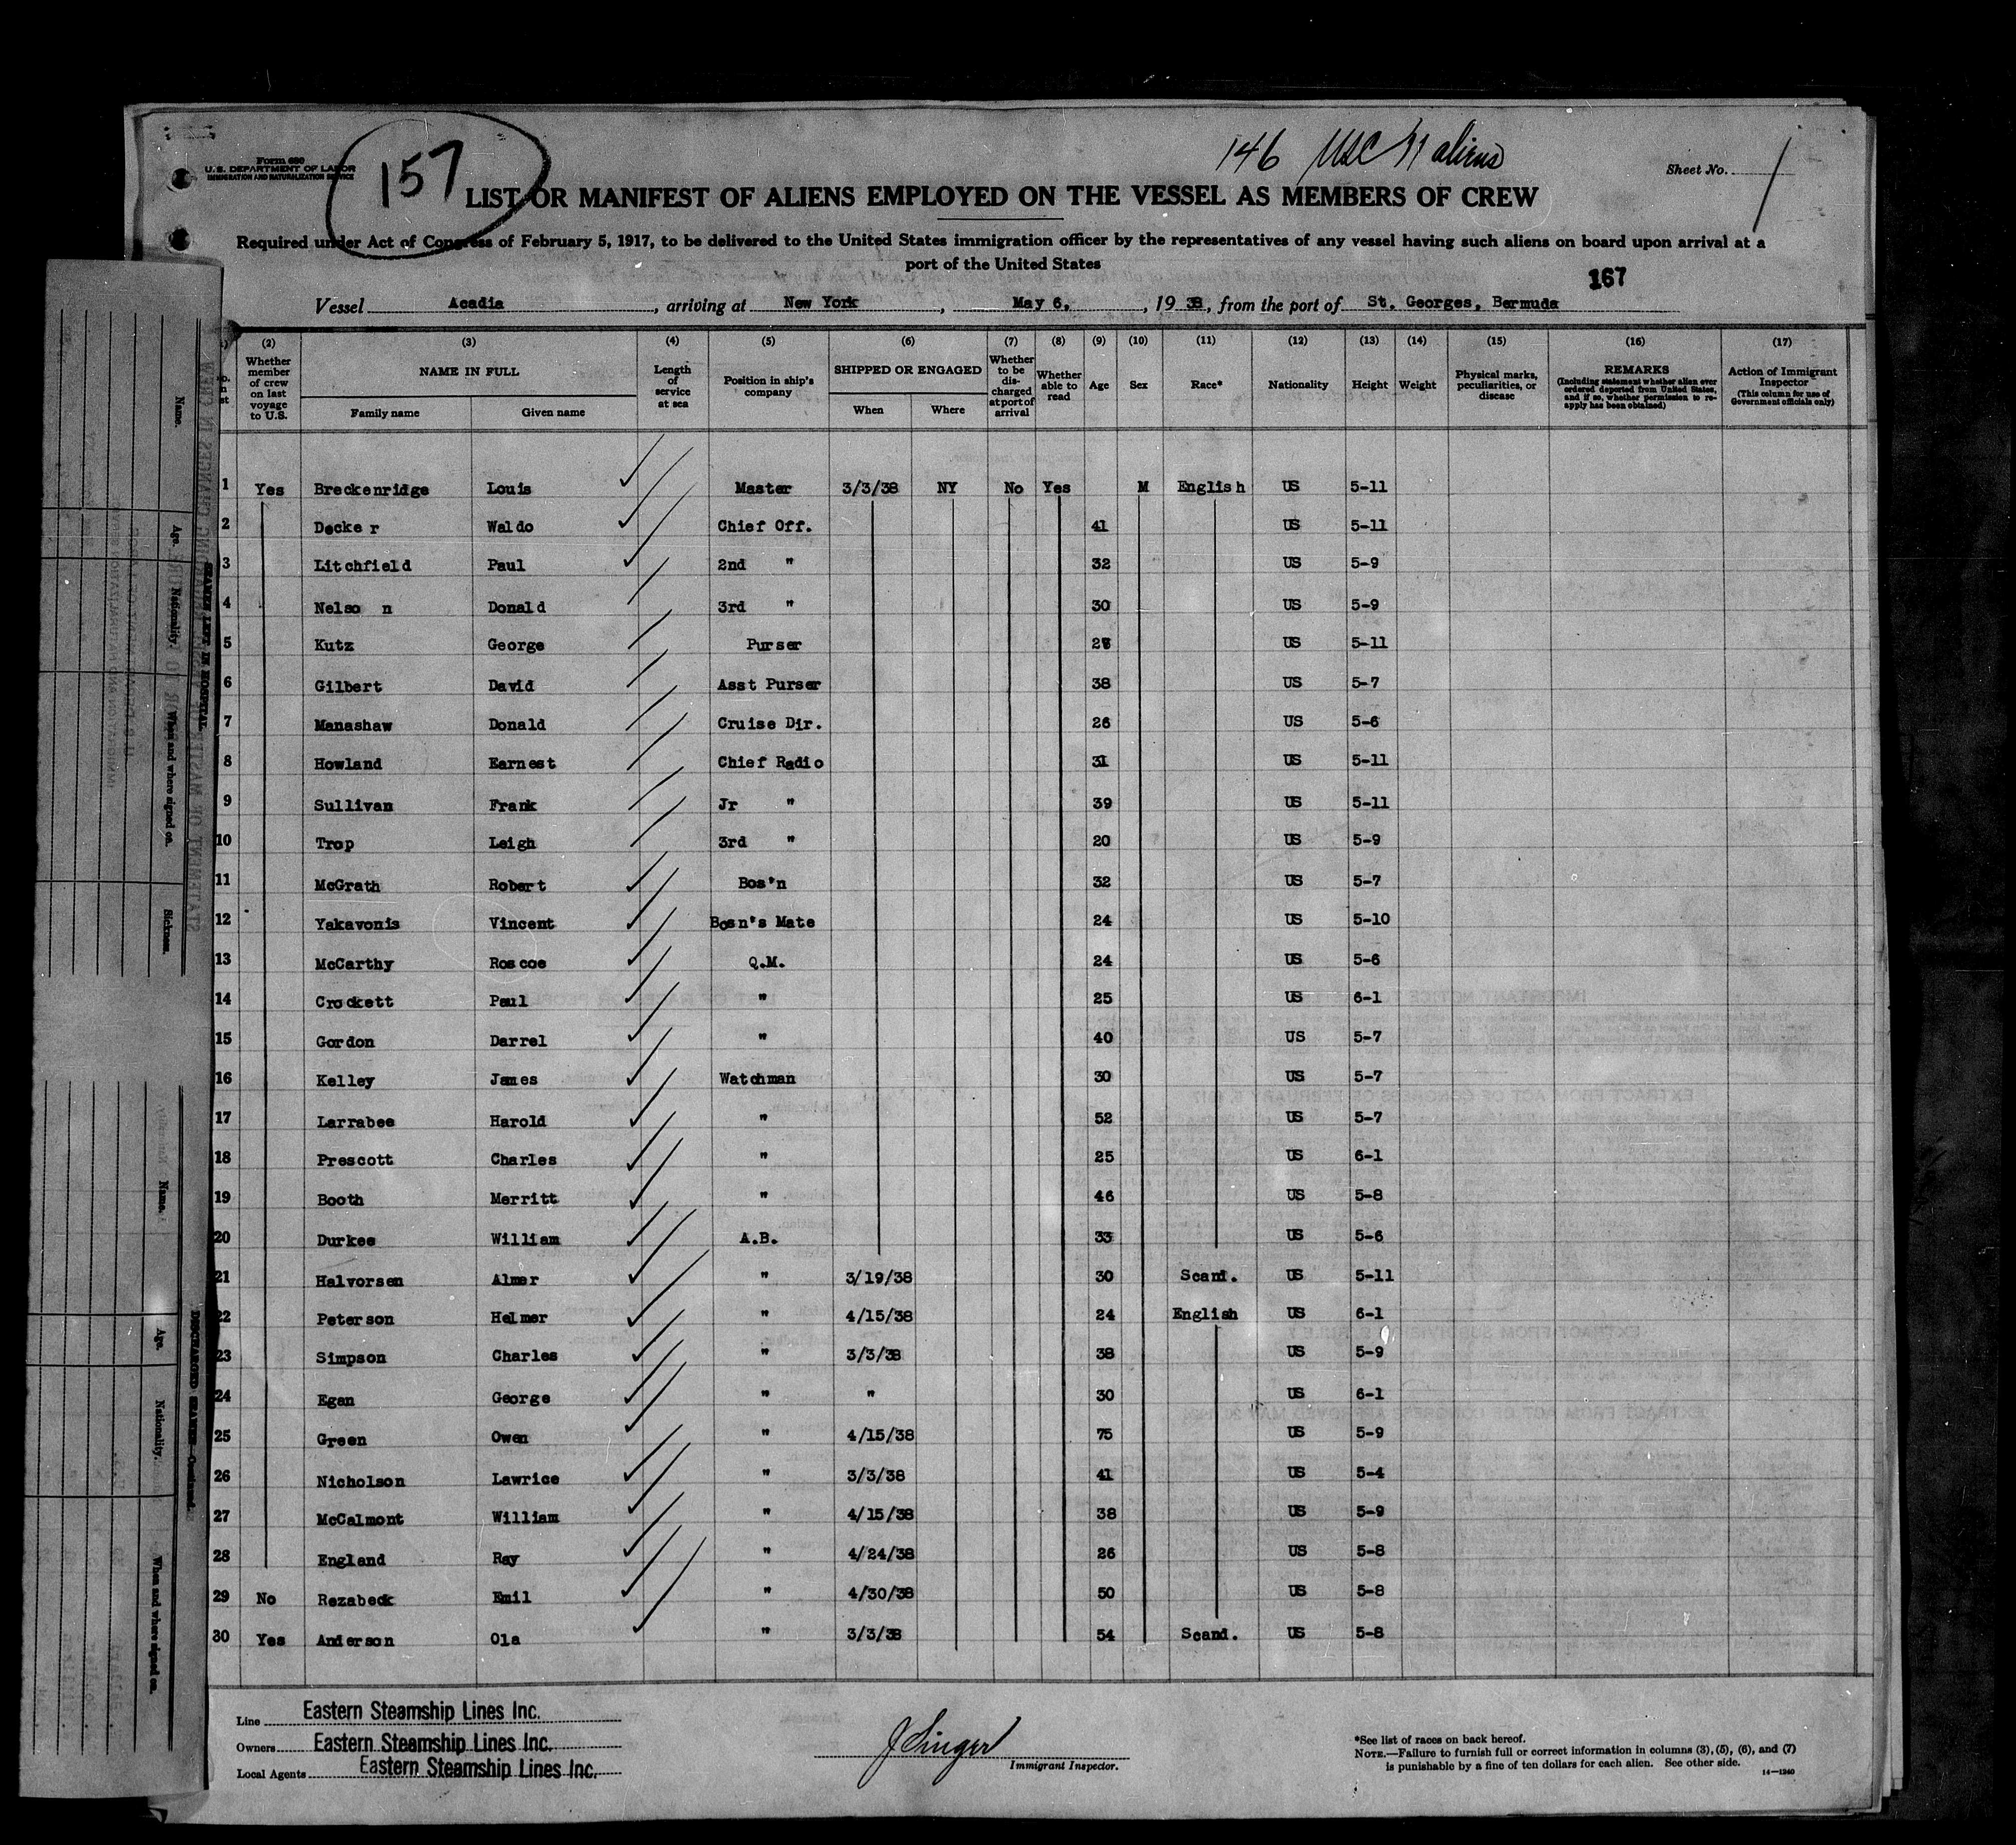 157
146 USC 11 aliens
Form 680
U.S. DEPARTMENT OF LABOR
IMMIGRATION AND NATURALIZATION SERVICE
Sheet No. 1
LIST OR MANIFEST OF ALIENS EMPLOYED ON THE VESSEL AS MEMBERS OF CREW
Required under Act of Congress of February 5, 1917, to be delivered to the United States immigration officer by the representatives of any vessel having such aliens on board upon arrival at a
port of the United States
167
Vessel Acadia, arriving at New York, May 6, 1938, from the port of St. Georges, Bermuda
(2) (3) (4) (5) (6) (7) (8) (9) (10) (11) (12) (13) (14) (15) (16) (17)
Whether member of crew on last voyage to U.S.
NAME IN FULL
Family name
Given name
Length of service at sea
Position in ship's company
SHIPPED OR ENGAGED
When
Where
Whether to be discharged at port of arrival
Whether able to read
Age
Sex
Race*
Nationality
Height
Weight
Physical marks, peculiarities, or disease
REMARKS
(Including statement whether alien ever ordered deported from United States, and if so, whether permission to reapply has been obtained)
Action of Immigrant Inspector
(This column for use of Government officials only)
1 Yes Breckenridge Louis Master 3/3/38 NY No Yes M English US 5-11
2 Decker Waldo Chief Off. 41 US 5-11
3 Litchfield Paul 2nd " 32 US 5-9
4 Nelso n Donald 3rd " 30 US 5-9
5 Kutz George Purser US 5-11
6 Gilbert David Asst Purser 38 US 5-7
7 Manashaw Donald Cruise Dir. 26 US 5-6
8 Howland Earnest Chief Radio 31 US 5-11
9 Sullivan Frank Jr " 39 US 5-11
10 Trop Leigh 3rd " 20 US 5-9
11 McGrath Robert Bos'n 32 US 5-7
12 Yakavonis Vincent Bosn's Mate 24 US 5-10
13 McCarthy Roscoe Q.M. 24 US 5-6
14 Crockett Paul " 25 US 6-1
15 Gordon Darrel " 40 US 5-7
16 Kelley James Watchman 30 US 5-7
17 Larrabee Harold " 52 US 5-7
18 Prescott Charles " 25 US 6-1
19 Booth Merritt " 46 US 5-8
20 Durkee William A.B. 33 US 5-6
21 Halvorsen Almer " 3/19/38 30 Scand. US 5-11
22 Peterson Helmer " 4/15/38 24 English US 6-1
23 Simpson Charles " 3/3/38 38 US 5-9
24 Egan George " " 30 US 6-1
25 Green Owen " 4/15/38 75 US 5-9
26 Nicholson Lawrice " 3/3/38 41 US 5-4
27 McCalmont William " 4/15/38 38 US 5-9
28 England Ray " 4/24/38 26 US 5-8
29 No Rezabeck Emil " 4/30/38 50 US 5-8
30 Yes Anderson Ola " 3/3/38 54 Scand. US 5-8
Line Eastern Steamship Lines Inc.
Owners Eastern Steamship Lines Inc.
Local Agents Eastern Steamship Lines Inc.
J Singer
Immigrant Inspector.
*See list of races on back hereof.
NOTE.—Failure to furnish full or correct information in columns (3), (5), (6), and (7)
is punishable by a fine of ten dollars for each alien. See other side.
14—1240
SEAMEN LEFT IN HOSPITAL
Name.
Age.
Nationality.
When and where signed on.
Sickness.
DISCHARGED SEAMEN—Continued.
Name.
Age.
Nationality.
When and where signed on.